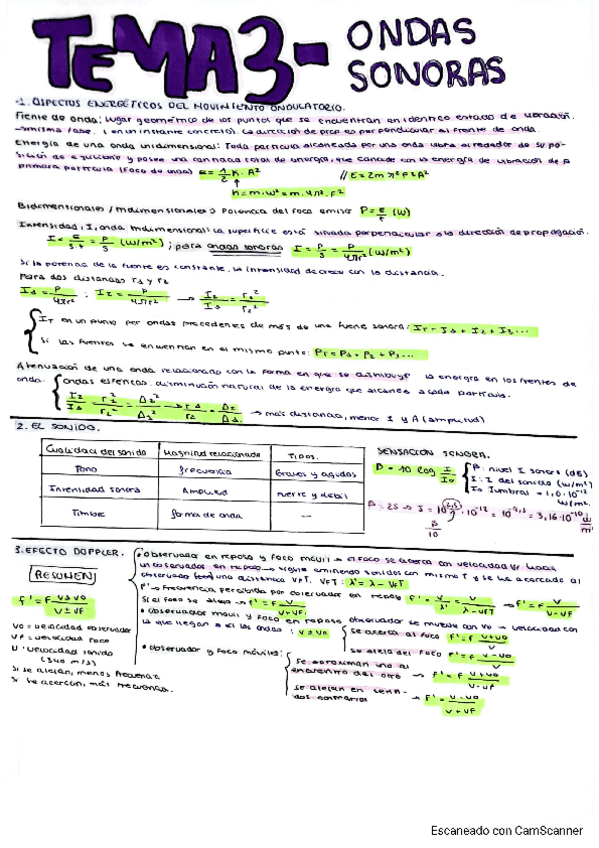 TEMA 3- ONDAS SONORAS
1. ASPECTOS ENERGÉTICOS DEL MOVIMIENTO ONDULATORIO.
Frente de onda: lugar geométrico de los puntos que se encuentran en identico estado de vibración.
→ misma fase. (en un instante concreto). La dirección de prop es perpendicular al frente de onda.
Energía de una onda unidimensional: Toda partícula alcanzada por una onda vibra alrededor de su po-
sición de equilibrio y posee una cantidad total de energía, que coincide con la energía de vibración de la
primera partícula (foco de onda) E = 1/2 K · A² // E = 2mπ²F²A²
K = m·w² = m·4π²·F²
Bidimensionales / tridimensionales → Potencia del foco emisor P = E/t (W)
Intensidad, I, onda tridimensional: La superficie está situada perpendicular a la dirección de propagación.
I = E/s·t = P/S (W/m²) ; para ondas sonoras I = P/S = P/4πr² (W/m²)
Si la potencia de la fuente es constante, la intensidad decrece con la distancia.
Para dos distancias r1 y r2
I1 = P/4πr² ; I2 = P/4πr² → I1/I2 = r2²/r1²
IT en un punto por ondas procedentes de más de una fuente sonora: IT = I1 + I2 + I3...
Si las fuentes se encuentran en el mismo punto: PT = P1 + P2 + P3...
Atenuación de una onda relacionado con la forma en que se distribuye la energía en los frentes de
onda: ondas esféricas. disminución natural de la energía que alcanza a cada partícula.
I2/I1 = r1²/r2² = A2²/A1² → r1/r2 = A2/A1 → más distancia, menor I y A (amplitud)
2. EL SONIDO.
Cualidad del sonido | Magnitud relacionada | Tipos.
Tono | frecuencia | Graves y agudos
Intensidad sonora | Amplitud | fuerte y débil
Timbre | forma de onda | —
SENSACIÓN SONORA.
β = 10 log I/I0
β: nivel I sonora (dB)
I: I del sonido (W/m²)
I0 (umbral) = 1,0·10⁻¹² W/m²
3. EFECTO DOPPLER.
RESUMEN
f' = F v±vo/v±vF
vo = velocidad observador
vF = velocidad foco
v = velocidad sonido
(340 m/s)
Si se alejan, menos frecuencia
Si se acercan, más frecuencia.
• observador en reposo y foco móvil → el foco se acerca con velocidad VF hacia
un observador en reposo → sigue emitiendo sonidos con mismo T y se ha acercado al
observador una distancia VFT. VFT: λ' = λ - VFT
f' → frecuencia percibida por observador en reposo f' = v/λ' = v/λ-VFT → f' = F v/v-vF
Si el foco se aleja → f' = F v/v+vF
• observador móvil y foco en reposo observador se mueve con vo → velocidad con
la que llegan a él las ondas: v ± vo
se acerca al foco f' = F v+vo/v
se aleja del foco f' = F v-vo/v
• observador y foco móviles:
se aproximan uno al
encuentro del otro → f' = F v+vo/v-vF
se alejan en senti-
dos contrarios → f' = F v-vo/v+vF
Escaneado con CamScanner